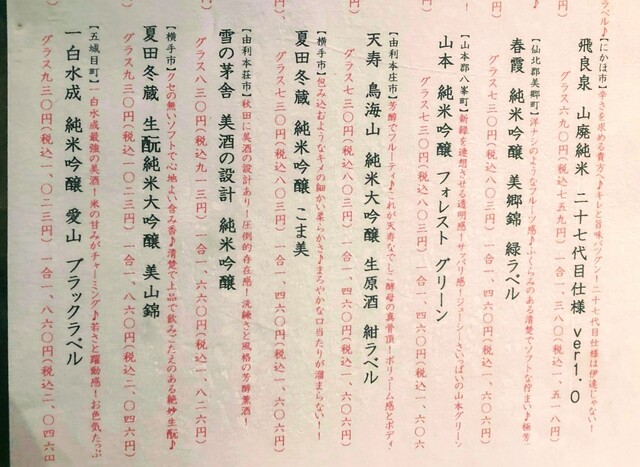 ラベル♪
【にかほ市】さを求める貴方へ♪キレと旨味バツグン!二十七代目仕様は伊達じゃない!
飛良泉 山廃純米 二十七代目仕様 ver1.0
グラス六九〇円(税込七五九円) 一合一、三八〇円(税込一、五一八円)
【仙北郡美郷町】洋ナシのようなフルーツ感♪ふくらみのある清楚でソフトな佇まい♪極芳
春霞 純米吟醸 美郷錦 緑ラベル
グラス七三〇円(税込八〇三円) 一合一、四六〇円(税込一、六〇六
【山本郡八峰町】新緑を連想させる透明感!サッパリ感!ジューシーさいっぱいの山本グリーン
山本 純米吟醸 フォレスト グリーン
グラス七三〇円(税込八〇三円) 一合一、四六〇円(税込一、六〇六
【由利本庄市】芳醇でフルーティ♪これが天寿なでしこ酵母の真骨頂!ボリューム感とボディ
天寿 鳥海山 純米大吟醸 生原酒 紺ラベル
グラス七三〇円(税込八〇三円) 一合一、四六〇円(税込一、六〇六円)
【横手市】包み込むようなキメの細かい柔らかさ♪まろやかな口当たりが溜まらない!!
夏田冬蔵 純米吟醸 こま美
グラス七三〇円(税込八〇三円) 一合一、四六〇円(税込一、六〇六円)
【由利本荘市】秋田に美酒の設計あり!圧倒的存在感!洗練さと風格の芳醇薫酒!
雪の茅舎 美酒の設計 純米吟醸
グラス八三〇円(税込九一三円) 一合一、六六〇円(税込一、八二六円)
【横手市】クセの無いソフトで心地よい含み香♪清楚で上品で飲みごたえのある絶妙生酛♪
夏田冬蔵 生酛純米大吟醸 美山錦
グラス九三〇円(税込一、〇二三円) 一合一、八六〇円(税込二、〇四六円)
【五城目町】一白水成最強の美酒!米の甘みがチャーミング♪若さと躍動感!お色気たっぷ
一白水成 純米吟醸 愛山 ブラックラベル
グラス九三〇円(税込一、〇二三円) 一合一、八六〇円(税込二、〇四六円